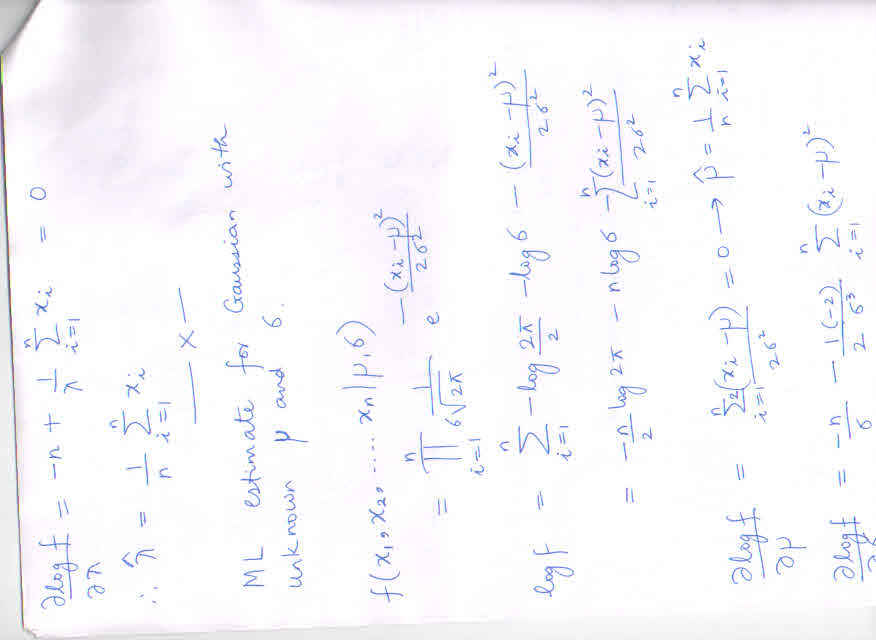 ∂log f/∂λ = -n + 1/λ Σ_{i=1}^{n} x_i = 0
∴ λ̂ = 1/n Σ_{i=1}^{n} x_i
— x —
ML estimate for Gaussian with
unknown μ and σ.
f(x_1, x_2, .... x_n | μ, σ)
= ∏_{i=1}^{n} 1/(σ√(2π)) e^{-(x_i - μ)²/(2σ²)}
log f = Σ_{i=1}^{n} -log 2π/2 - log σ - (x_i - μ)²/(2σ²)
= -n/2 log 2π - n log σ - Σ_{i=1}^{n} (x_i - μ)²/(2σ²)
∂log f/∂μ = Σ_{i=1}^{n} 2(x_i - μ)/(2σ²) = 0 → μ̂ = 1/n Σ_{i=1}^{n} x_i
∂log f/∂σ = -n/σ - 1/2 (-2)/σ³ Σ_{i=1}^{n} (x_i - μ)²